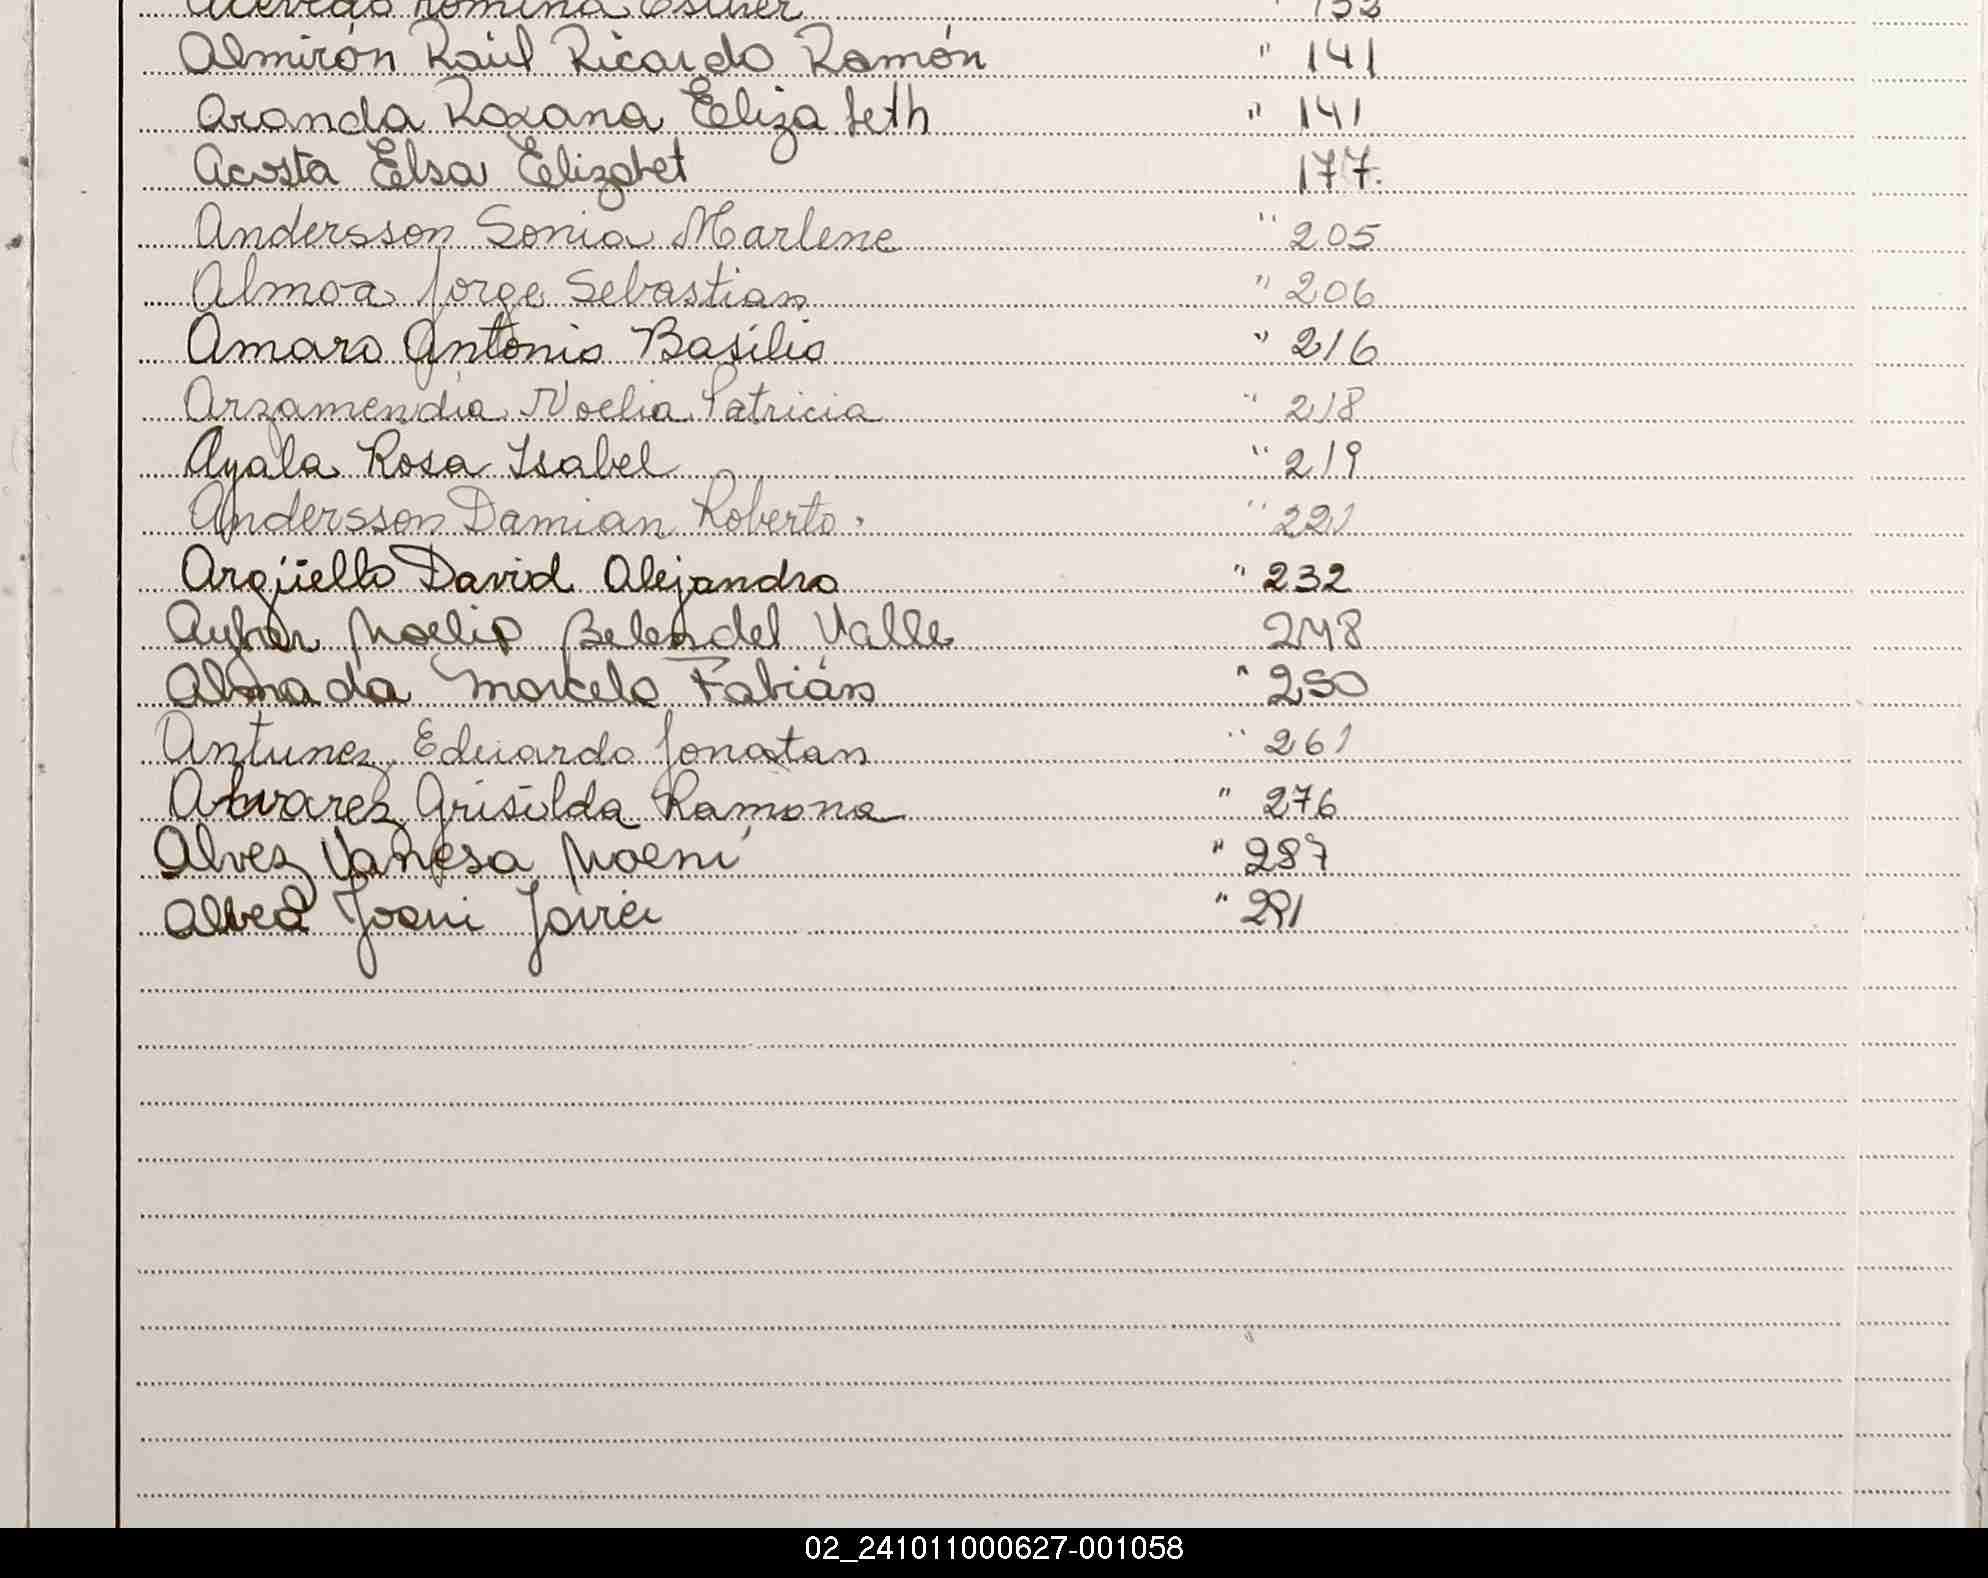 Acevedo Romina Esther " 132
Almirón Raúl Ricardo Ramón " 141
Aranda Roxana Elizabeth " 141
Acosta Elsa Elizabet 177.
Andersson Sonia Marlene " 205
Almoa Jorge Sebastian " 206
Amaro Antonio Basilio " 216
Arzamendia Noelia Patricia " 218
Ayala Rosa Isabel " 219
Andersson Damian Roberto. " 221
Argüello David Alejandro " 232
Noelia Belen del Valle 248
Almada Marcelo Fabián " 250
Antunez Eduardo Jonatan " 261
Alvarez Grisilda Ramona " 276
Alvez Vanesa Noemí " 287
" 291
02_241011000627-001058